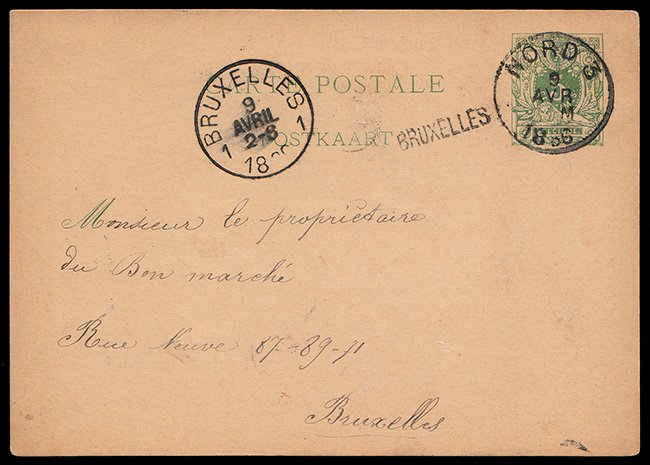 CARTE POSTALE
POSTKAART
BRUXELLES
9
AVRIL
2-8
1 1
18
BRUXELLES
NORD 3
9
AVR
M
1886
Monsieur le propriétaire
du Bon marché
Rue Neuve 87-89-71
Bruxelles